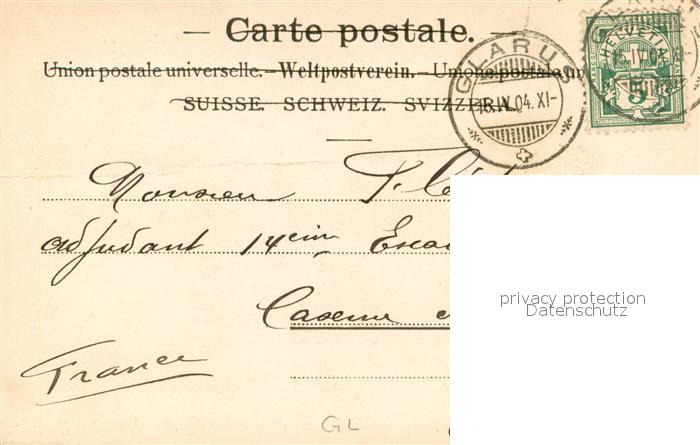 — Carte postale. —
Union postale universelle. – Weltpostverein. – Unione postale
SUISSE. SCHWEIZ. SVIZZERA.
GLARUS
HELVETIA
5
Monsieur F.
adjudant 14eim
Caserne
France
privacy protection
Datenschutz
GL